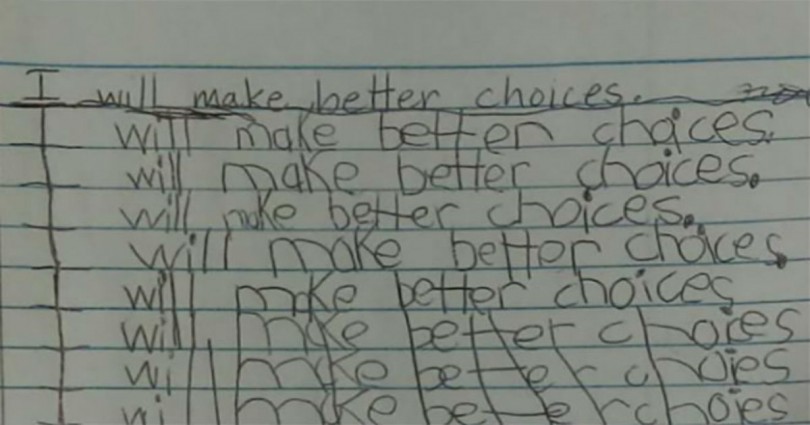 I will make better choices.
I will make better choices.
I will make better choices.
I will make better choices.
I will make better choices.
I will make better choices
I will make better choies
I will make better choies
I will make better choies